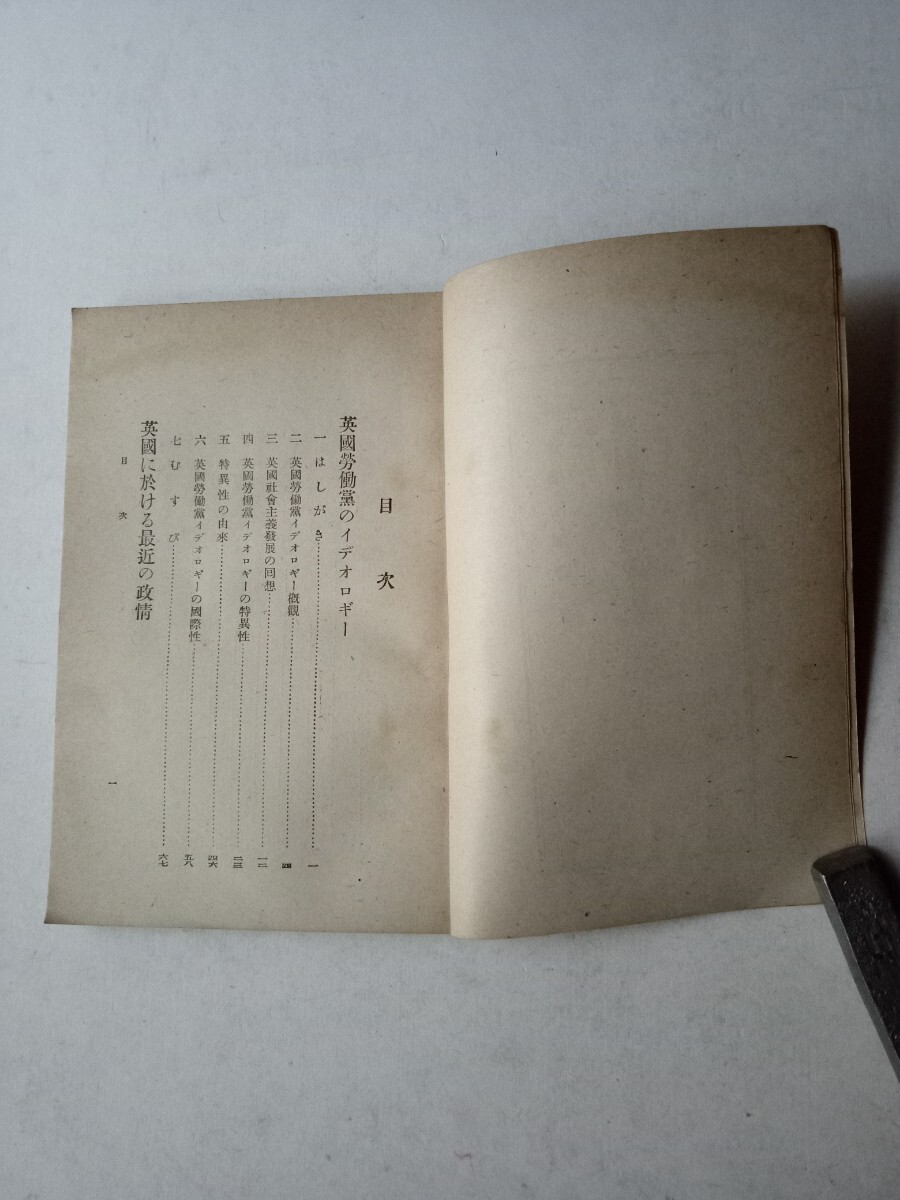 目次
英國勞働黨のイデオロギー
一 はしがき……一
二 英國勞働黨イデオロギー槪觀……四
三 英國社會主義發展の囘想……一二
四 英國勞働黨イデオロギーの特異性……二三
五 特異性の由來……四六
六 英國勞働黨イデオロギーの國際性……五八
七 むすび……六七
英國に於ける最近の政情
目次
一